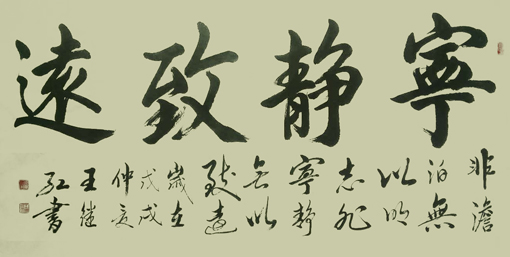 寧靜致遠
非澹
泊無
以明
志非
寧靜
無以
致遠
歲在
戊戌
仲夏
王繼
紅書